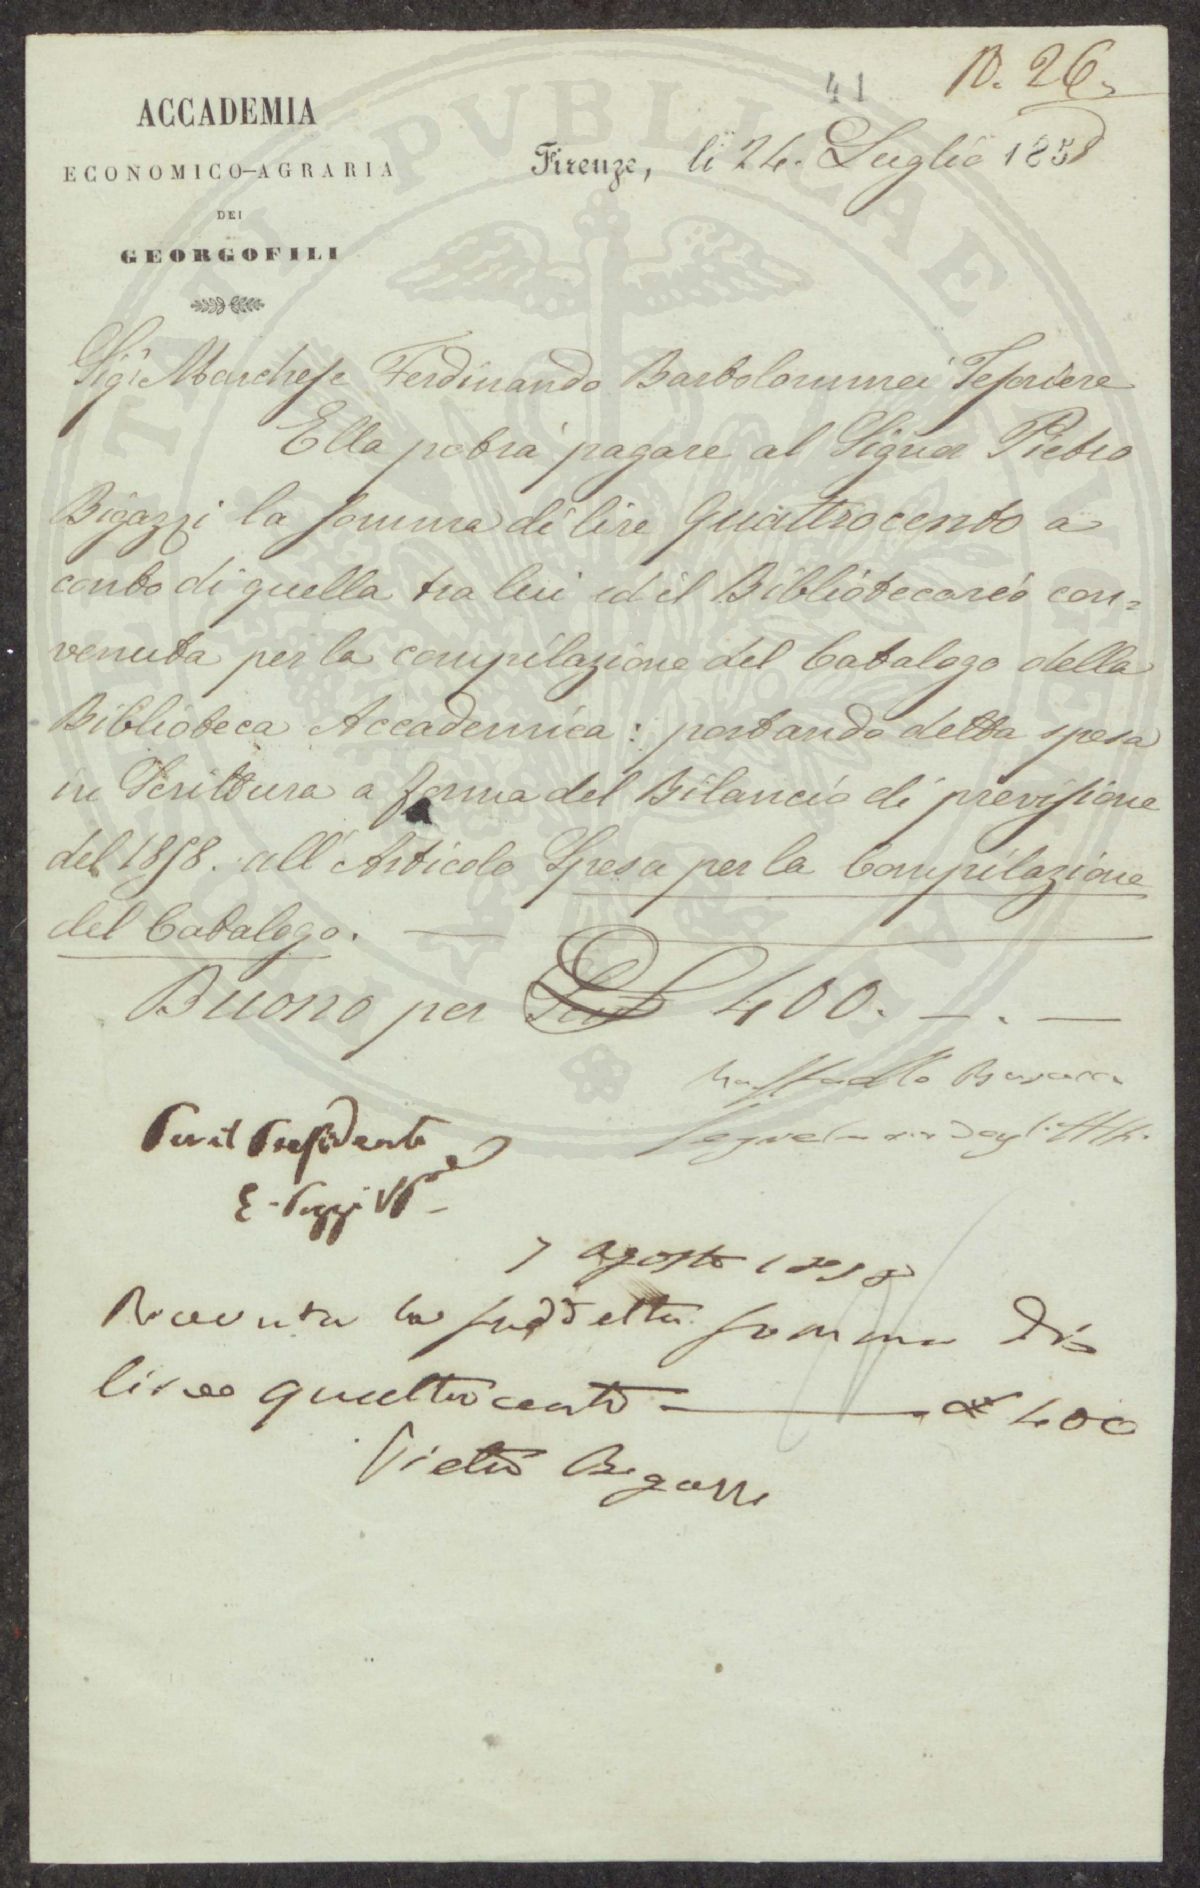 41
N. 26.
ACCADEMIA
ECONOMICO-AGRARIA
DEI
GEORGOFILI
Firenze, li 24. Luglio 1858
Sig.r Marchese Ferdinando Bartolommei Tesoriere
Ella potrà pagare al Signor Pietro
Bigazzi la somma di lire Quattrocento a
conto di quella tra lui ed il Bibliotecario con=
venuta per la compilazione del Catalogo della
Biblioteca Accademica: portando detta spesa
in Scrittura a forma del Bilancio di previsione
del 1858. all'Articolo Spesa per la Compilazione
del Catalogo.
Buono per 400. — . —
Raffaello Busacca
Segretario degli Atti
Per il Presidente
E. Poggi
7 agosto 1858
Ricevuta la suddetta somma di
lire quattrocento — 400
Pietro Bigazzi